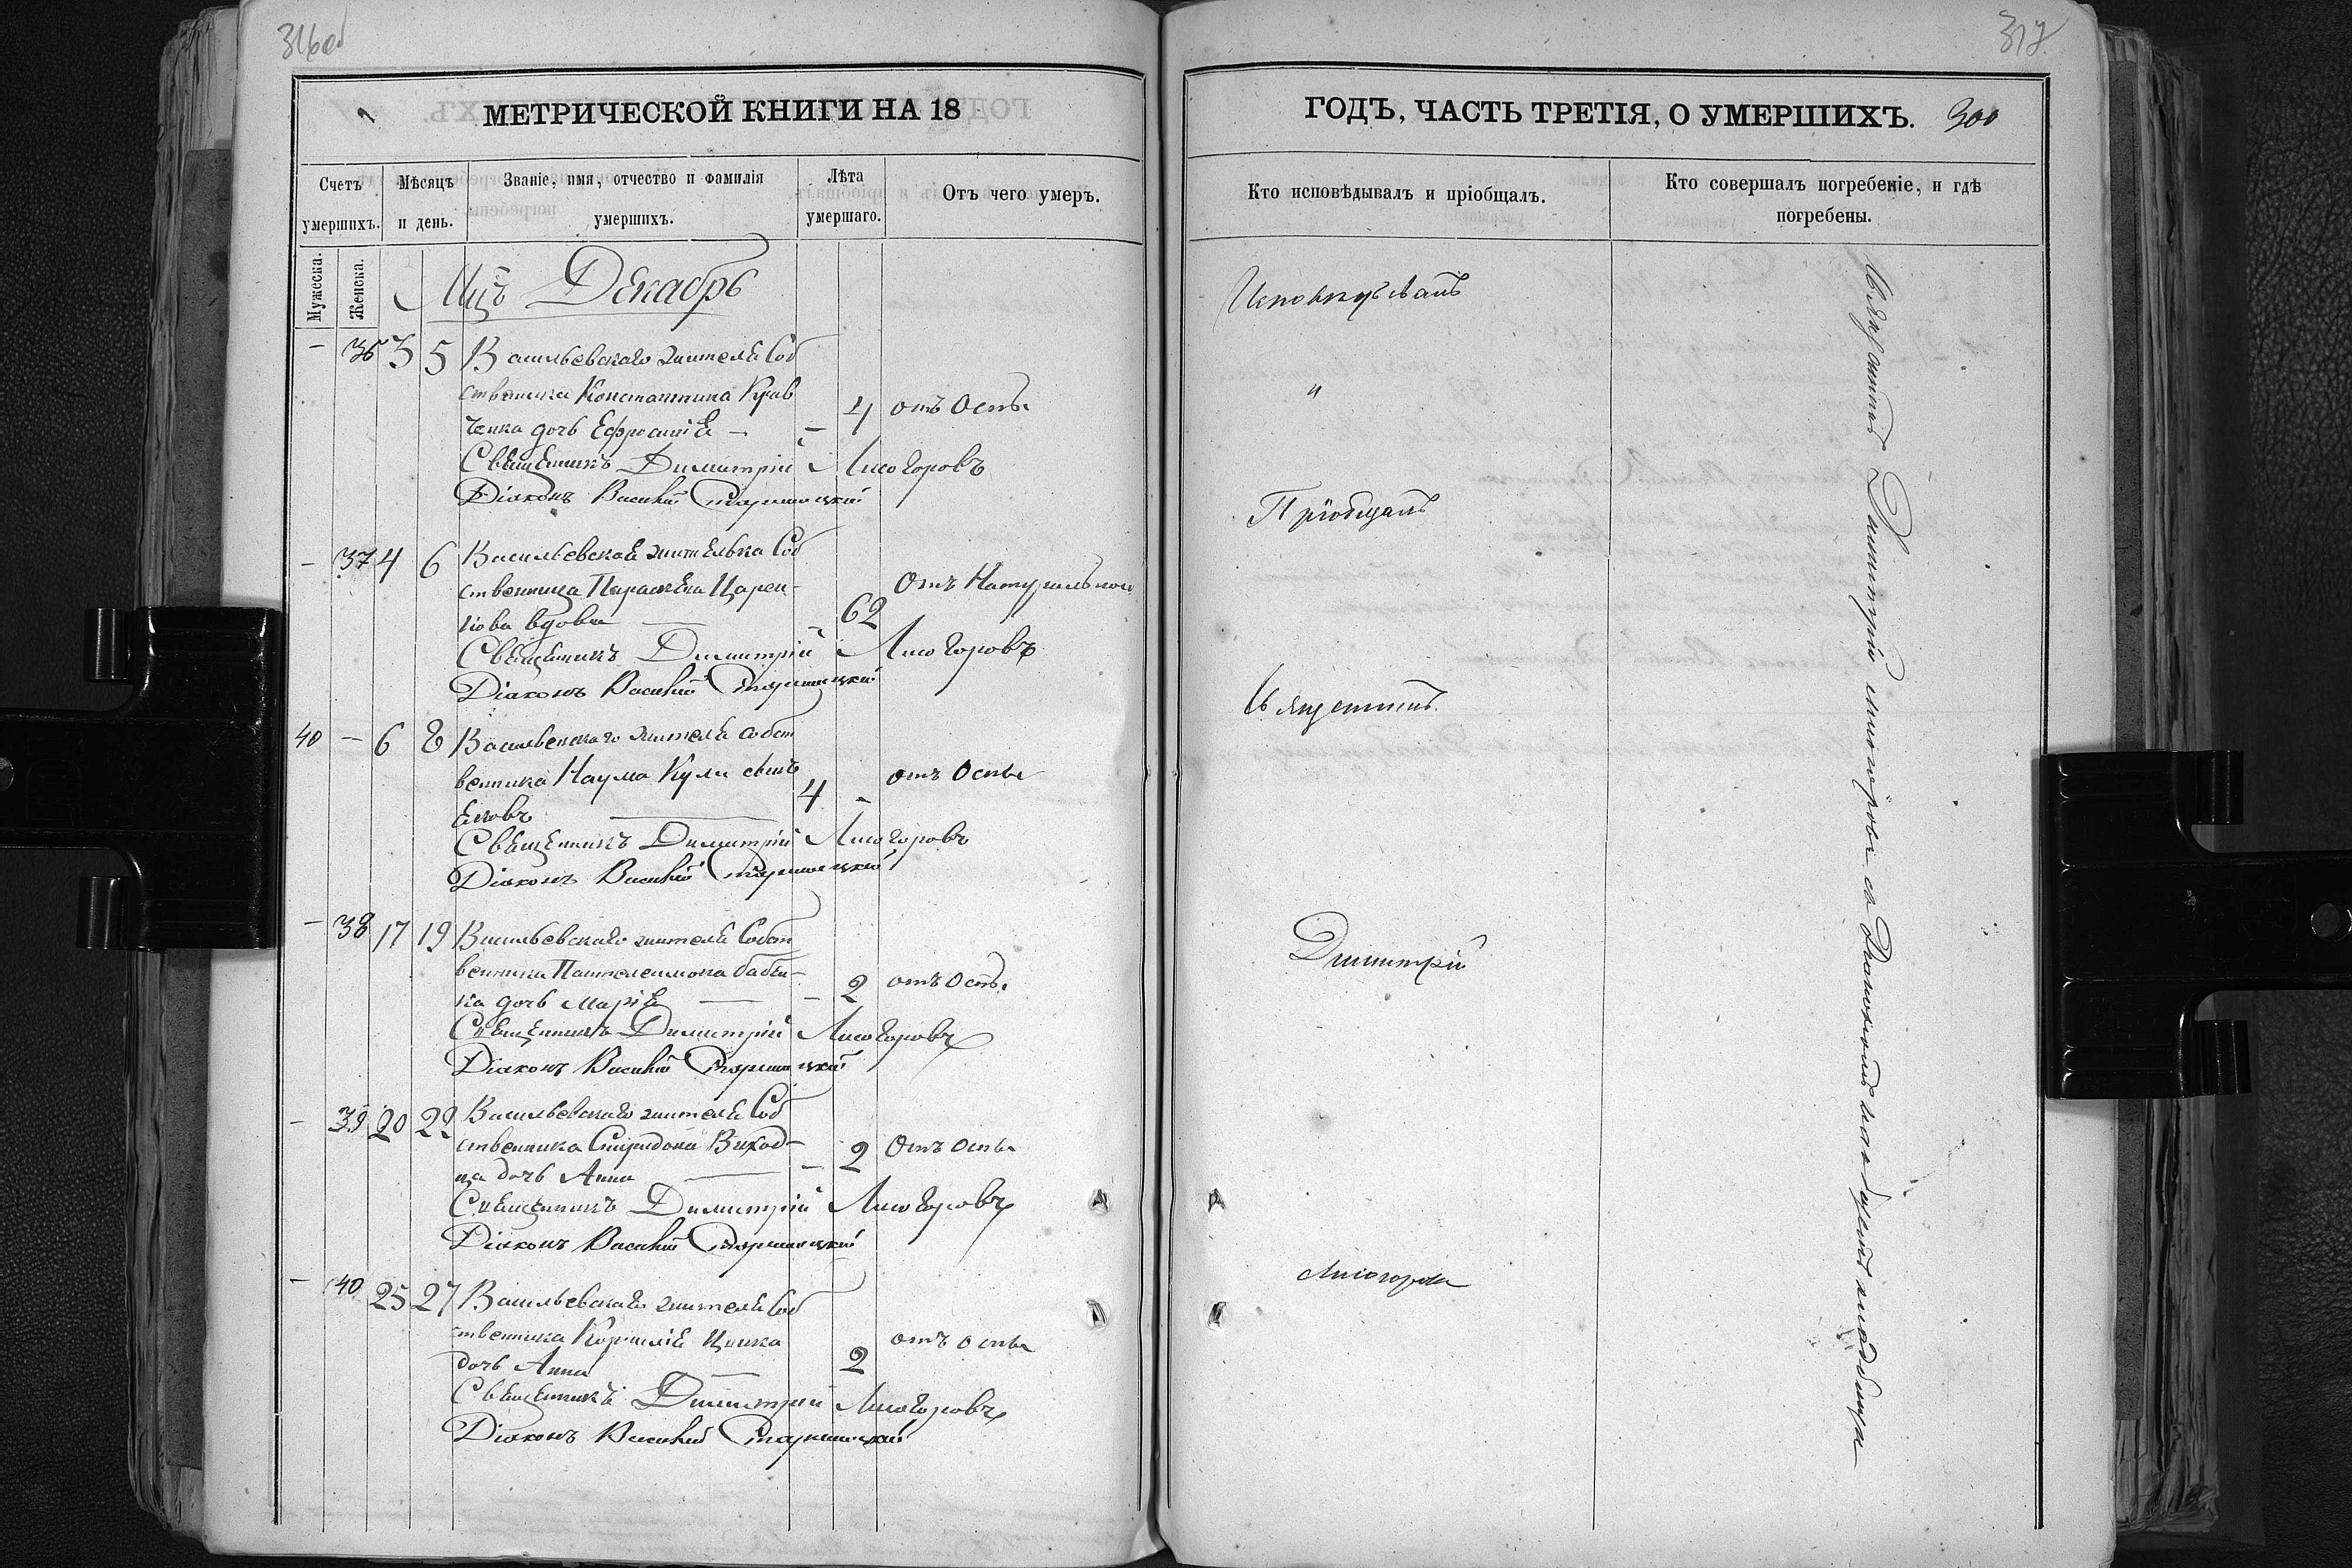 316об
МЕТРИЧЕСКОЙ КНИГИ НА 18
Счетъ умершихъ.
Мѣсяцъ и день.
Званіе, имя, отчество и фамилія умершихъ.
Лѣта умершаго.
Отъ чего умеръ.
Мужеска.
Женска.
Мцъ Декабрь
– 36 3 5 Васильевскаго жителя Соб
ственника Константина Крав
ченка дочь Ефросинія – – 4 отъ Оспы
Священникъ Димитрій Лисогоровъ
Діаконъ Василий
– 37 4 6 Васильевская жителька Соб
ственница Параскева Царен-
кова вдова – 62 Отъ Натуральной
Священникъ Димитрій Лисогоровъ
Діаконъ Василий
40 – 6 8 Васильевскаго жителя собст
венника Наума Кули сынъ
Яковъ 4 – отъ Оспы
Священникъ Димитрій Лисогоровъ
Діаконъ Василий
– 38 17 19 Васильевскаго жителя Собст
венника Пантелеимона Бабен-
ка дочь Марія – – 2 отъ Оспы
Священникъ Димитрій Лисогоровъ
Діаконъ Василий
– 39 20 22 Васильевскаго жителя Соб
ственника Спиридона Виход-
ца дочь Анна – 2 Отъ Оспы
Священникъ Димитрій Лисогоровъ
Діаконъ Василий
– 40 25 27 Васильевскаго жителя Соб
ственника Корнилія
дочь Анна 2 отъ оспы
Священникъ Димитрій Лисогоровъ
Діаконъ Василий
317
ГОДЪ, ЧАСТЬ ТРЕТІЯ, О УМЕРШИХЪ. 300
Кто исповѣдывалъ и пріобщалъ.
Кто совершалъ погребеніе, и гдѣ погребены.
Исповѣдывалъ
и
Пріобщалъ
Священникъ
Димитрій
Лисогоровъ
Священникъ Димитрій Лисогоровъ съ Діакономъ на общемъ кладбищѣ